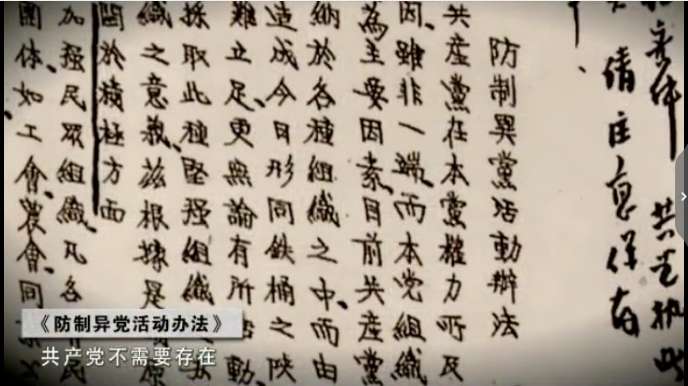 请注意保存
防制異黨活動辦法
共產黨在本黨權力所及
因、雖非一端、而本党組織
為主要因素、目前共產黨
納於各種組織之中、而由
造成今日形同鉄桶之陝
難立足、更無論有所動、
採取此種堅强組織
織之意義、茲根據是
關於積極方面
加强民眾組織、凡各民
团体、如工會、農會、同
《防制异党活动办法》
共产党不需要存在